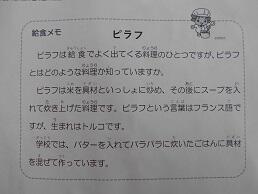 給食メモ
ピラフ
ピラフは給食でよく出てくる料理のひとつですが、ピラフ
とはどのような料理か知っていますか。
ピラフは米を具材といっしょに炒め、その後にスープを入
れて炊き上げた料理です。ピラフという言葉はフランス語で
すが、生まれはトルコです。
学校では、バターを入れてパラパラに炊いたごはんに具材
を混ぜて作っています。